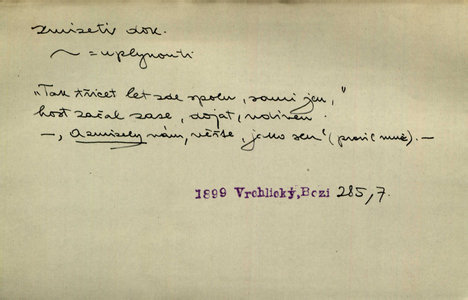 zmizeti dok.
~ = uplynouti
„Tak třicet let zde spolu, sami jen,"
host začal zase, dojat,
—, a zmizely nám, věřte, jako sen' (pravil muž). —
1899 Vrchlický, Bozi 285,7.